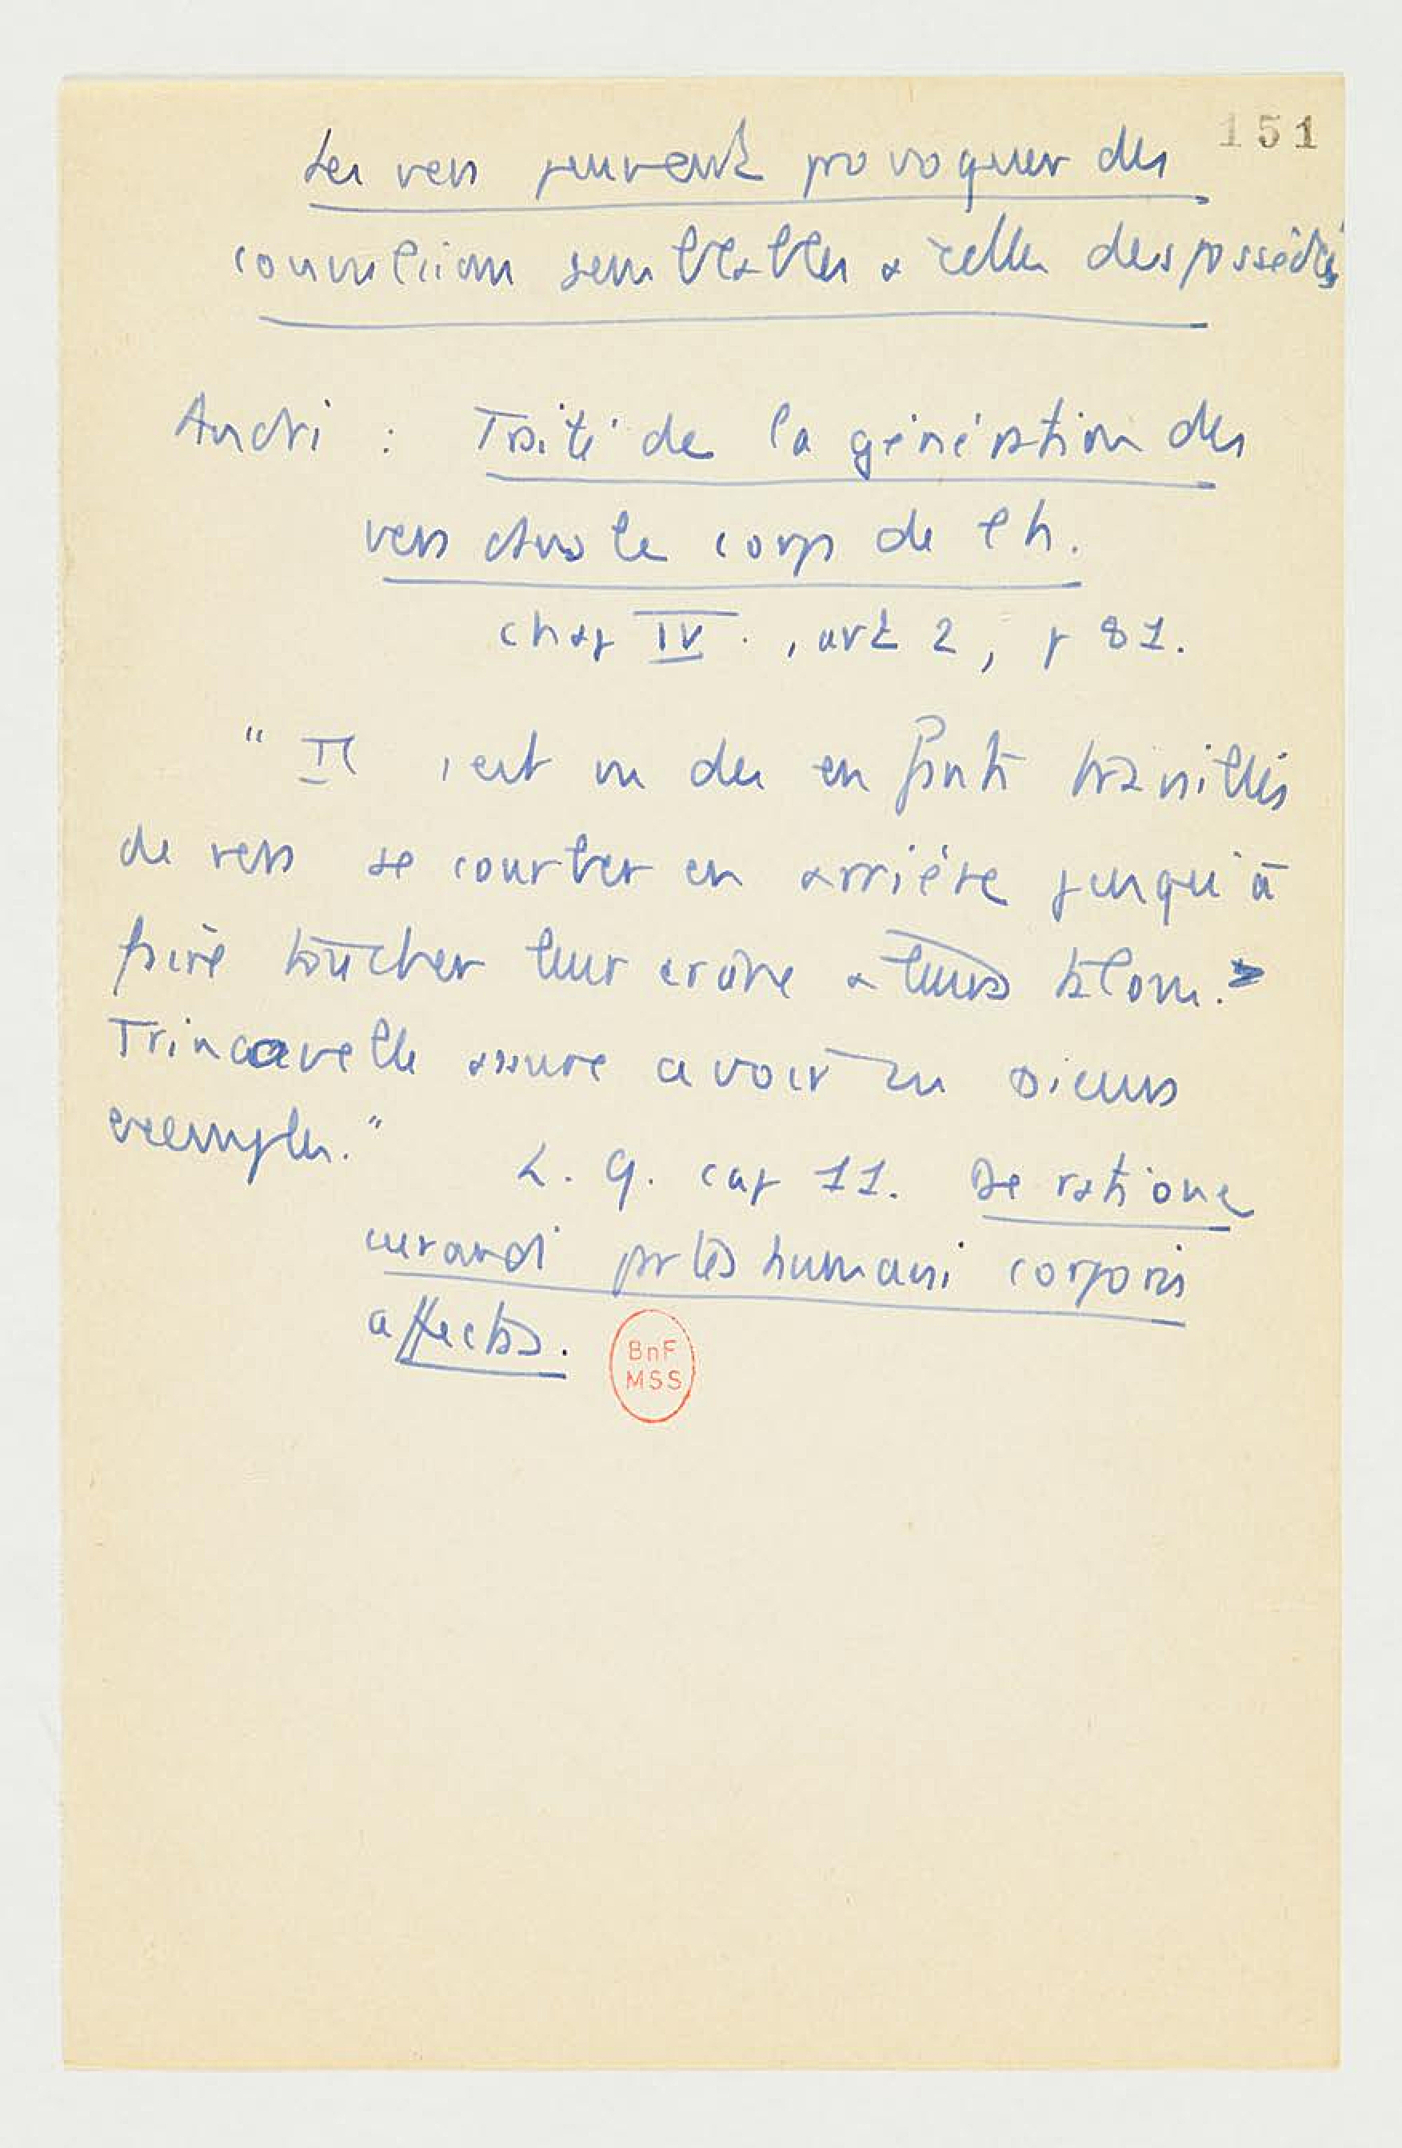 151
Les vers peuvent provoquer des
convulsions semblables à celles des possédés
Andri : Traité de la génération des
vers dans le corps de l'h.
chap IV. , art 2, p 81.
" Il s'est vu des enfants travaillés
de vers se courber en arrière jusqu'à
faire toucher leur crâne à leurs talons.
Trincavelle assure avoir vu
exemples."
L. 9. cap 11. De ratione
curandi partes humani corporis
affectas.
BnF
MSS